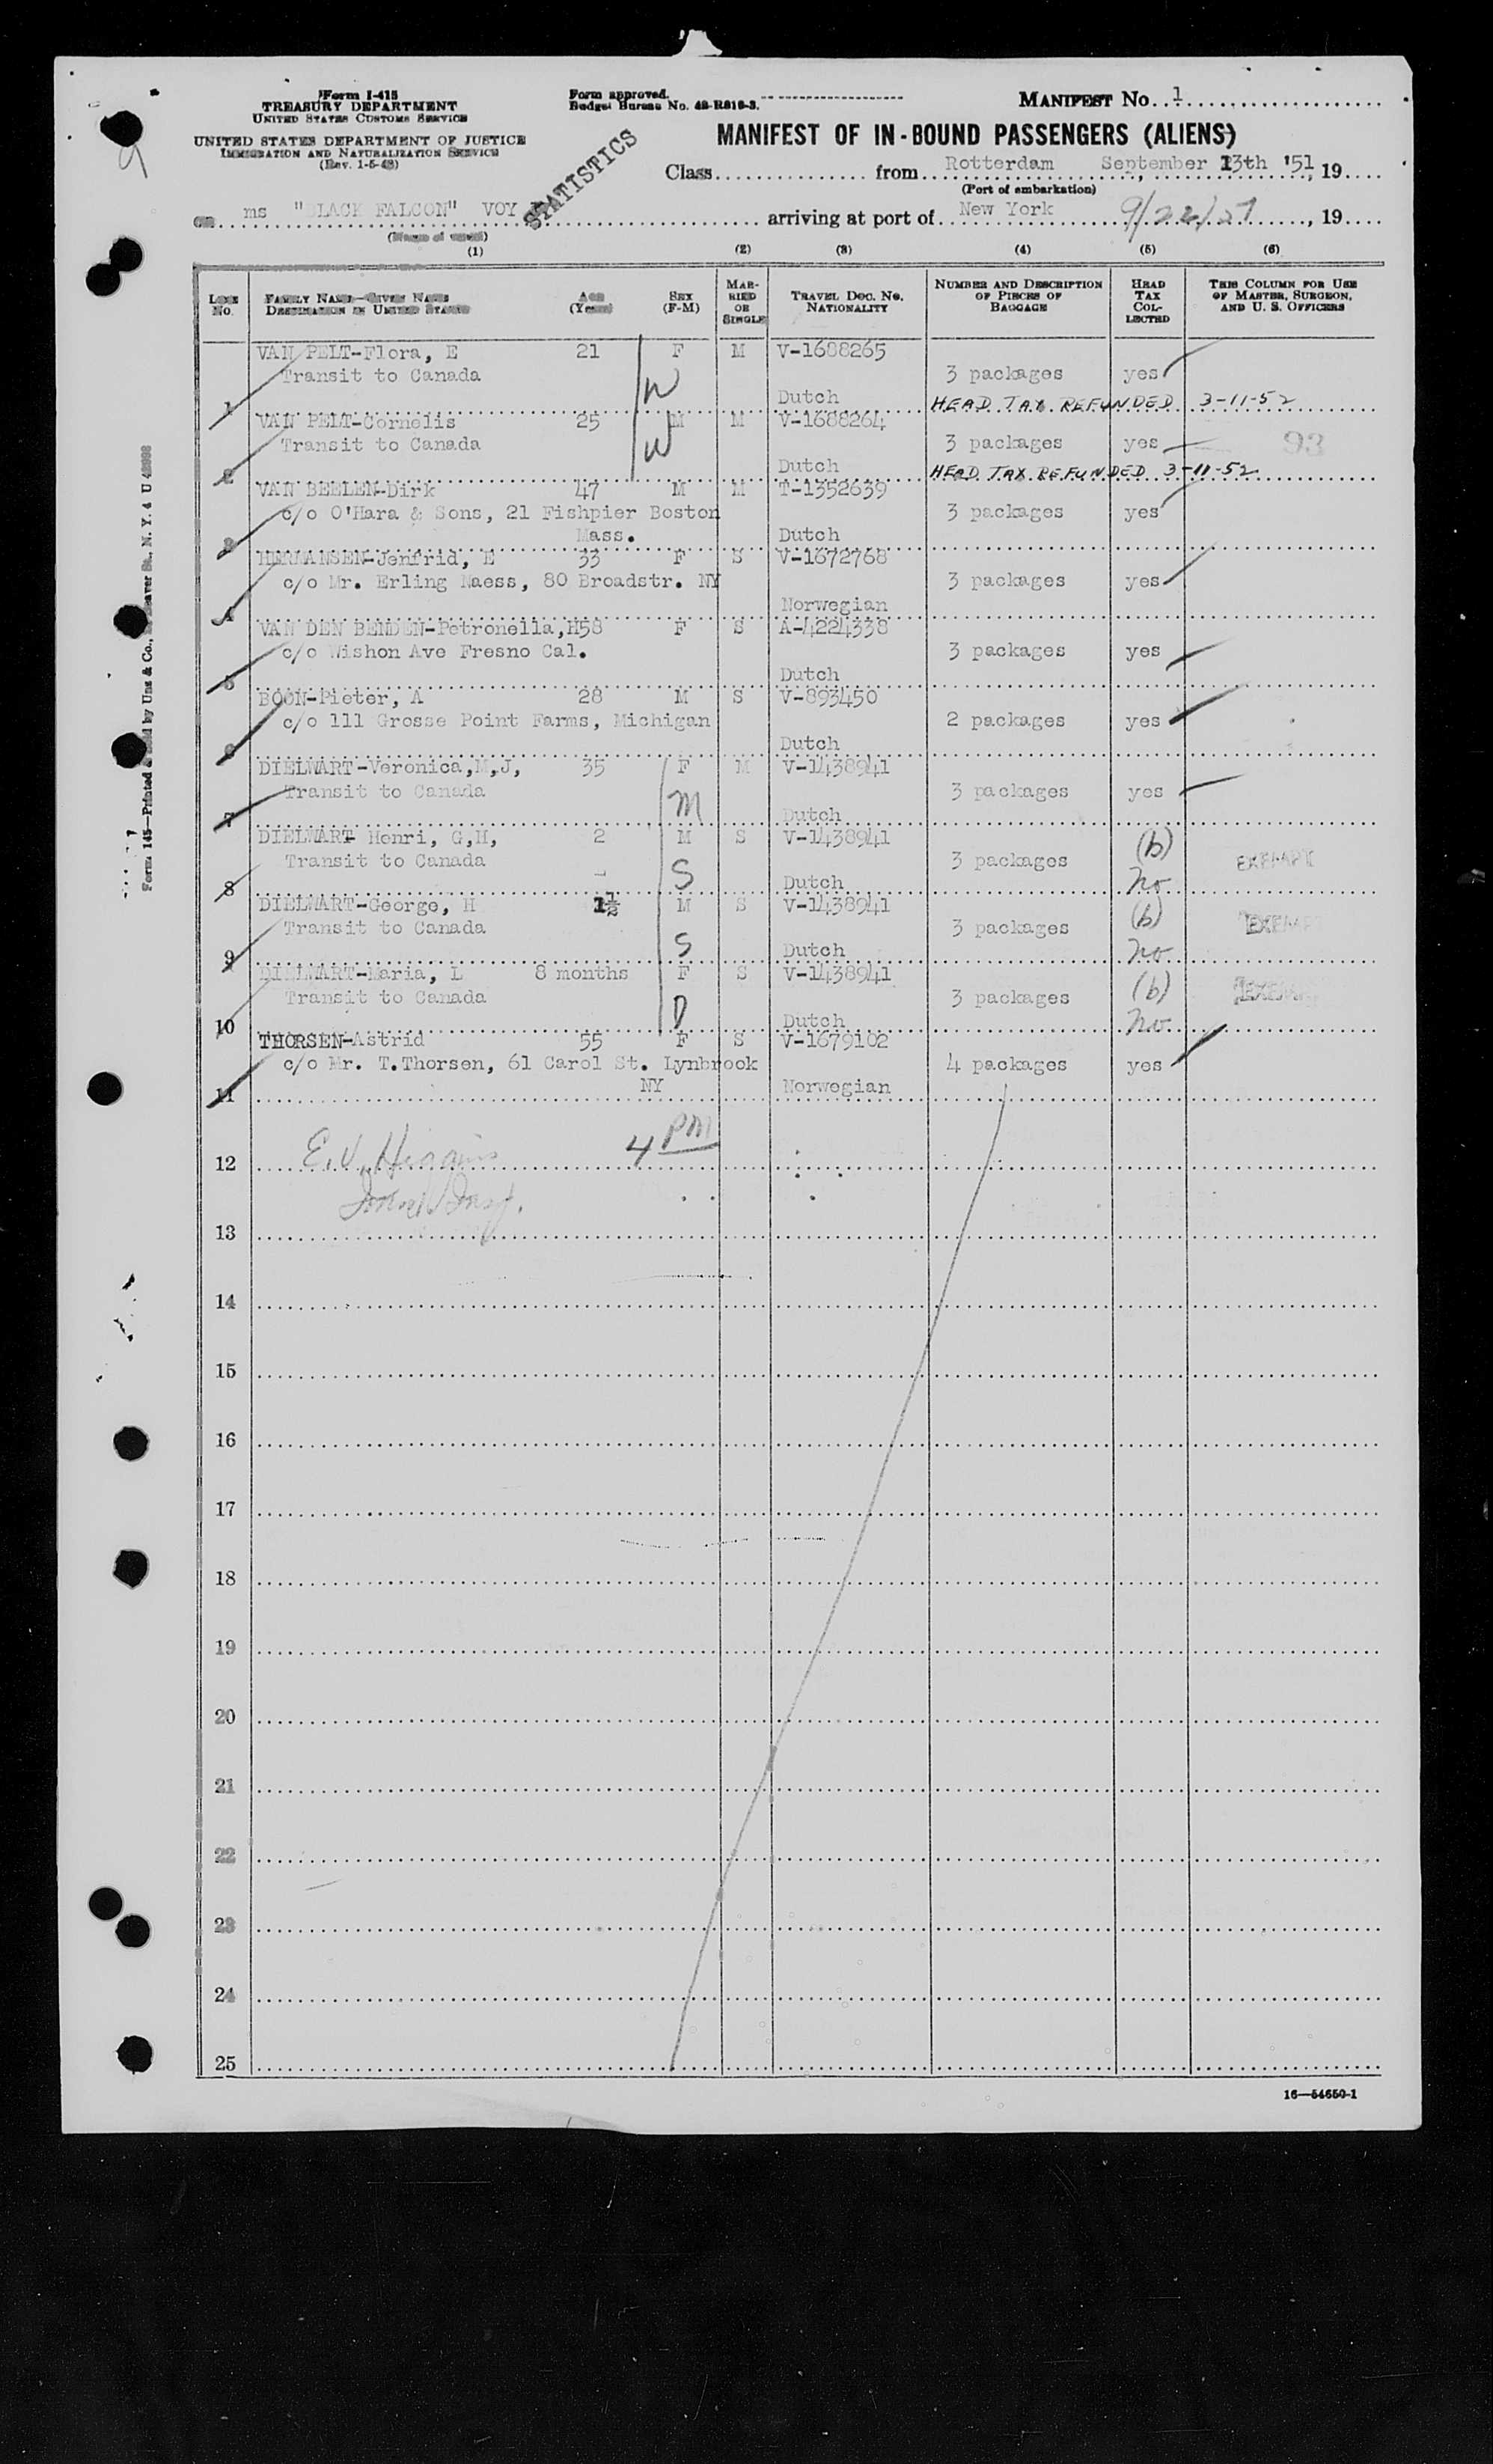 Form I-415
TREASURY DEPARTMENT
UNITED STATES CUSTOMS SERVICE
UNITED STATES DEPARTMENT OF JUSTICE
IMMIGRATION AND NATURALIZATION SERVICE
(Rev. 1-5-48)
Form approved.
Budget Bureau No. 43-R316-3.
MANIFEST No. 1
MANIFEST OF IN-BOUND PASSENGERS (ALIENS)
STATISTICS
Class from Rotterdam September 13th '51, 19
(Port of embarkation)
on ms "BLACK FALCON" VOY arriving at port of New York 9/22/51, 19
(Name of vessel)
(1) (2) (3) (4) (5) (6)
LINE No. FAMILY NAME—GIVEN NAME DESTINATION IN UNITED STATES AGE (Years) SEX (F-M) MARRIED OR SINGLE TRAVEL DOC. NO. NATIONALITY NUMBER AND DESCRIPTION OF PIECES OF BAGGAGE HEAD TAX COLLECTED THIS COLUMN FOR USE OF MASTER, SURGEON, AND U. S. OFFICERS
VAN PELT-Flora, E 21 F M V-1688265
Transit to Canada W 3 packages yes
1 Dutch HEAD TAX REFUNDED 3-11-52
VAN PELT-Cornelis 25 M M V-1688264
Transit to Canada W 3 packages yes 93
2 Dutch HEAD TAX REFUNDED 3-11-52
VAN BEELEN-Dirk 47 M M T-1352639
c/o O'Hara & Sons, 21 Fishpier Boston 3 packages yes
3 Mass. Dutch
HERMANSEN-Jenfrid, E 33 F S V-1672768
c/o Mr. Erling Naess, 80 Broadstr. NY 3 packages yes
4 Norwegian
VAN DEN BENDEN-Petronella, H 58 F S A-4224338
c/o Wishon Ave Fresno Cal. 3 packages yes
5 Dutch
BOON-Pieter, A 28 M S V-893450
c/o 111 Grosse Point Farms, Michigan 2 packages yes
6 Dutch
DIELWART-Veronica,M,J, 35 F M V-1438941
Transit to Canada M 3 packages yes
7 Dutch
DIELWART Henri, G,H, 2 M S V-1438941
Transit to Canada S 3 packages (b) EXEMPT
8 Dutch No
DIELWART-George, H 1½ M S V-1438941
Transit to Canada S 3 packages (b) EXEMPT
9 Dutch No
DIELWART-Maria, L 8 months F S V-1438941
Transit to Canada D 3 packages (b) EXEMPT
10 Dutch No
THORSEN-Astrid 55 F S V-1679102
c/o Mr. T.Thorsen, 61 Carol St. Lynbrook 4 packages yes
11 NY Norwegian
12 E.V. Higgins 4 PM
Insp.
13
14
15
16
17
18
19
20
21
22
23
24
25
16—54650-1